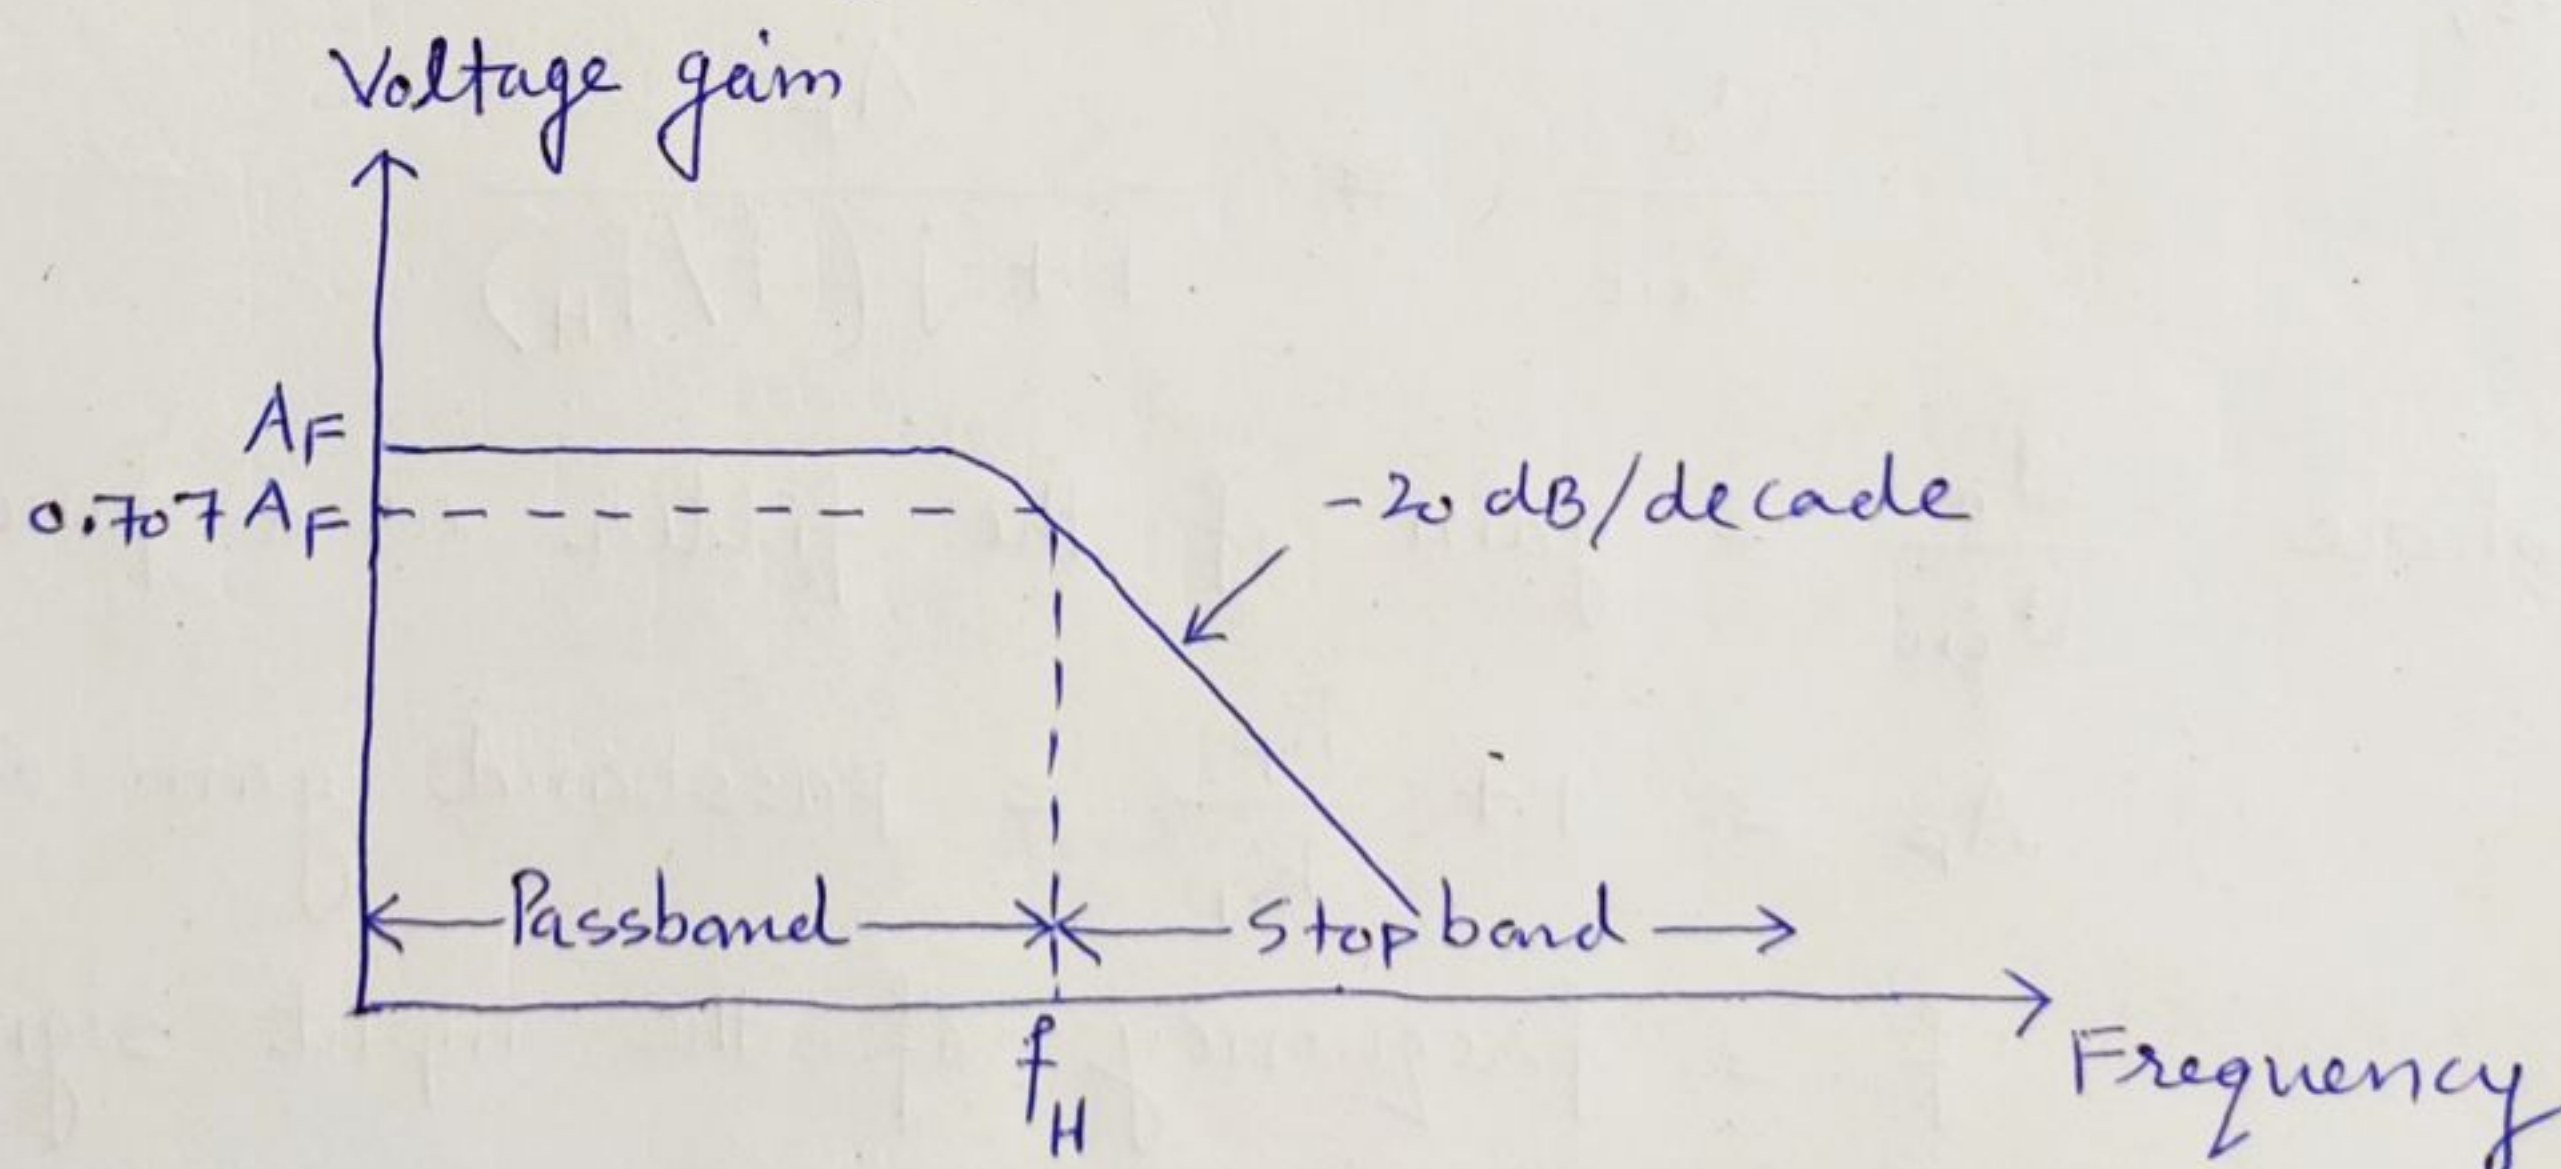 Voltage gain
A_F
0.707 A_F
-20 dB/decade
Passband
Stopband
f_H
Frequency